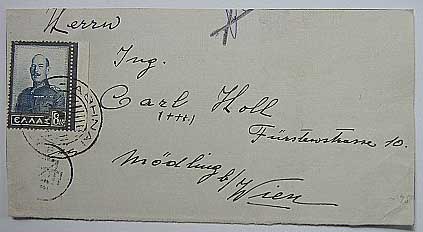 Herrn
Ing.
Carl Holl
Fürstenstrasse 10.
Mödling b/Wien
ΕΛΛΑΣ